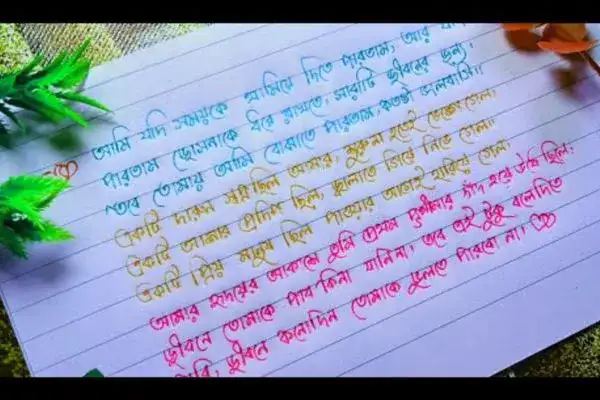 আমি যদি সময়কে থামিয়ে দিতে পারতাম, আর
পারতাম তোমাকে ধরে রাখতে, সারাটি জীবনের জন্য,
তবে তোমায় আমি বোঝাতে পারতাম, কতটা ভালবাসি।।
একটি দারুন সপ্ন ছিল আমার, শুরু না হতেই ভেঙ্গে গেল,
একটি আমার প্রদিপ ছিল, জ্বালাতে গিয়ে নিভে গেল।
একটি প্রিয় মানুষ ছিল পাওয়ার আগেই হারিয়ে গেল,
আমার হৃদয়ের আকাশে তুমি প্রথম পূর্ণিমার চাঁদ হয়ে উঠে ছিলে,
জীবনে তোমাকে পাব কিনা যানি না, তবে এই টুকু বলে দিতে
পারি, জীবনে কনোদিন তোমাকে ভুলতে পারবো না।